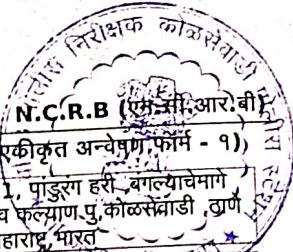 पोलीस निरीक्षक कोळसेवाडी पोलीस स्टेशन
N.C.R.B (एन.सी.आर.बी)
एकीकृत अन्वेषण फॉर्म - १)
1, पाडुरंग हरी ,बगल्याचेमागे
व कल्याण पु,कोळसेवाडी ,ठाणे
महाराष्ट्र,भारत